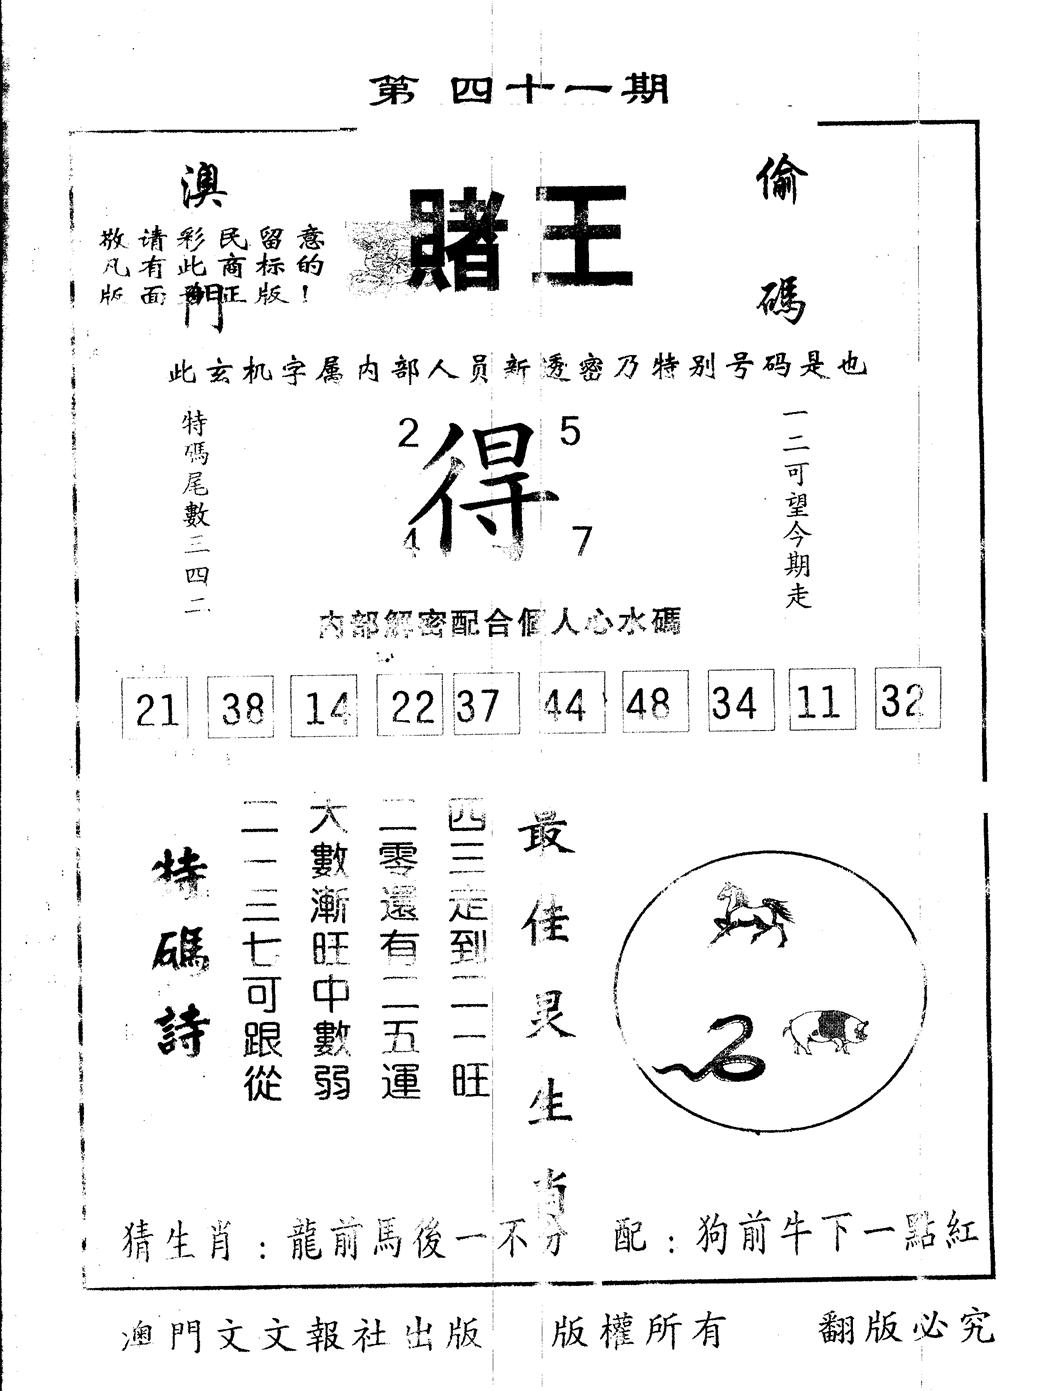 第四十一期
澳門
賭王
偷碼
敬请彩民留意
凡有此商标的
版面 正版！
此玄机字属内部人员新透密乃特别号码是也
特碼尾數三四二
2 5
得
4 7
一二可望今期走
内部解密配合個人心水碼
21 38 14 22 37 44 48 34 11 32
特碼詩
四三走到二一旺
二零還有二五運
大數漸旺中數弱
二一三七可跟從
最佳灵生肖
猜生肖：龍前馬後一不分 配：狗前牛下一點紅
澳門文文報社出版 版權所有 翻版必究